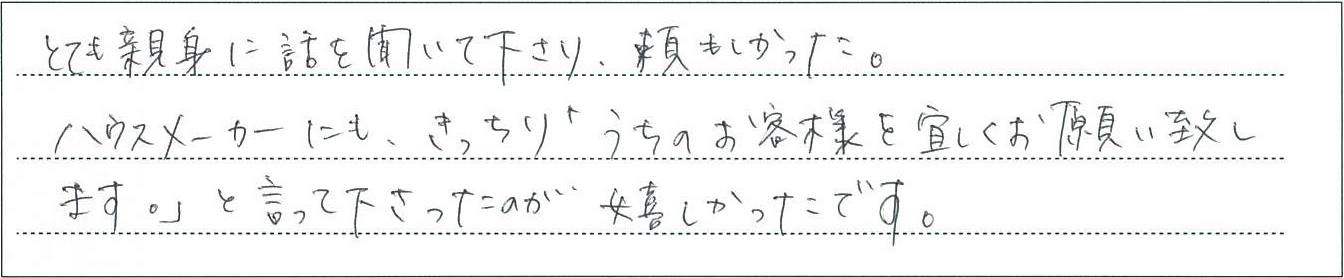 とても親身に話を聞いて下さり、頼もしかった。
ハウスメーカーにも、きっちり「うちのお客様を宜しくお願い致し
ます。」と言って下さったのが嬉しかったです。